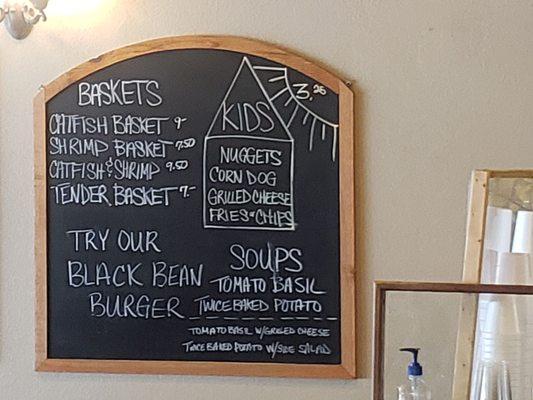 BASKETS
CATFISH BASKET 9-
SHRIMP BASKET 7.50
CATFISH & SHRIMP 9.50
TENDER BASKET 7-
TRY OUR
BLACK BEAN
BURGER
3.25
KIDS
NUGGETS
CORN DOG
GRILLED CHEESE
FRIES OR CHIPS
SOUPS
TOMATO BASIL
TWICE BAKED POTATO
TOMATO BASIL W/GRILLED CHEESE
TWICE BAKED POTATO W/SIDE SALAD